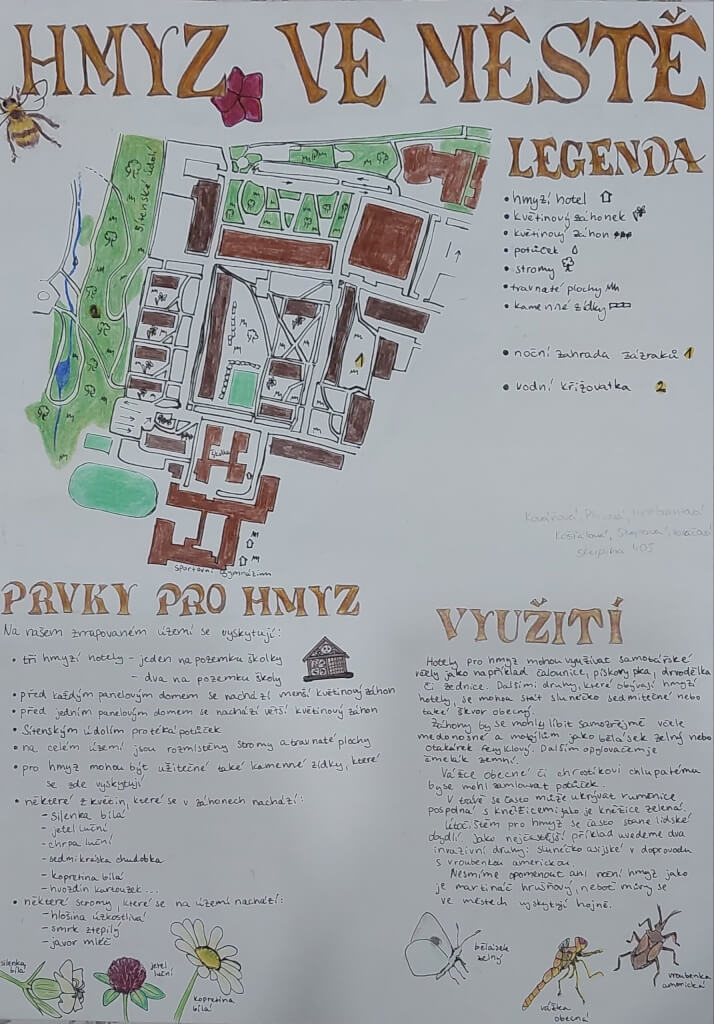 HMYZ VE MĚSTĚ
Sítenské údolí
školka
sportovní gymnázium
1
2
LEGENDA
• hmyzí hotel
• květinový záhonek
• květinový záhon
• potůček
• stromy
• travnaté plochy
• kamenné zídky
• noční zahrada zázraků 1
• vodní křižovatka 2
skupina 405
PRVKY PRO HMYZ
Na našem zmapovaném území se vyskytují:
• tři hmyzí hotely - jeden na pozemku školky
- dva na pozemku školy
• před každým panelovým domem se nachází menší květinový záhon
• před jedním panelovým domem se nachází větší květinový záhon
• Sítenským údolím protéká potůček
• na celém území jsou rozmístěny stromy a travnaté plochy
• pro hmyz mohou být užitečné také kamenné zídky, které
se zde vyskytují
• některé z květin, které se v záhonech nachází:
- silenka bílá
- jetel luční
- chrpa luční
- sedmikráska chudobka
- kopretina bílá
- hvozdík kartouzek...
• některé stromy, které se na území nachází:
- hlošina úzkolistá
- smrk ztepilý
- javor mléč
silenka bílá
jetel luční
kopretina bílá
VYUŽITÍ
Hotely pro hmyz mohou využívat samotářské
včely jako například čalounice, pískorypka, drvodělka
či zednice. Dalšími druhy, které obývají hmyzí
hotely, se mohou stát slunéčko sedmitečné nebo
také škvor obecný.
Záhony by se mohly líbit samozřejmě včele
medonosné a motýlům jako bělásek zelný nebo
otakárek fenyklový. Dalším opylovačem je
čmelák zemní.
Vážce obecné či chrostíkovi chlupatému
by se mohl zamlouvat potůček.
V trávě se často může ukrývat ruměnice
pospolná s kněžicemi jako je kněžice zelená.
Útočištěm pro hmyz se často stane lidské
obydlí, jako nejčastější příklad uvedeme dva
invazivní druhy: slunéčko asijské v doprovodu
s vroubenkou americkou.
Nesmíme opomenout ani noční hmyz jako
je martináč hrušňový, neboť můry se
ve městech vyskytují hojně.
bělásek zelný
vážka obecná
vroubenka americká